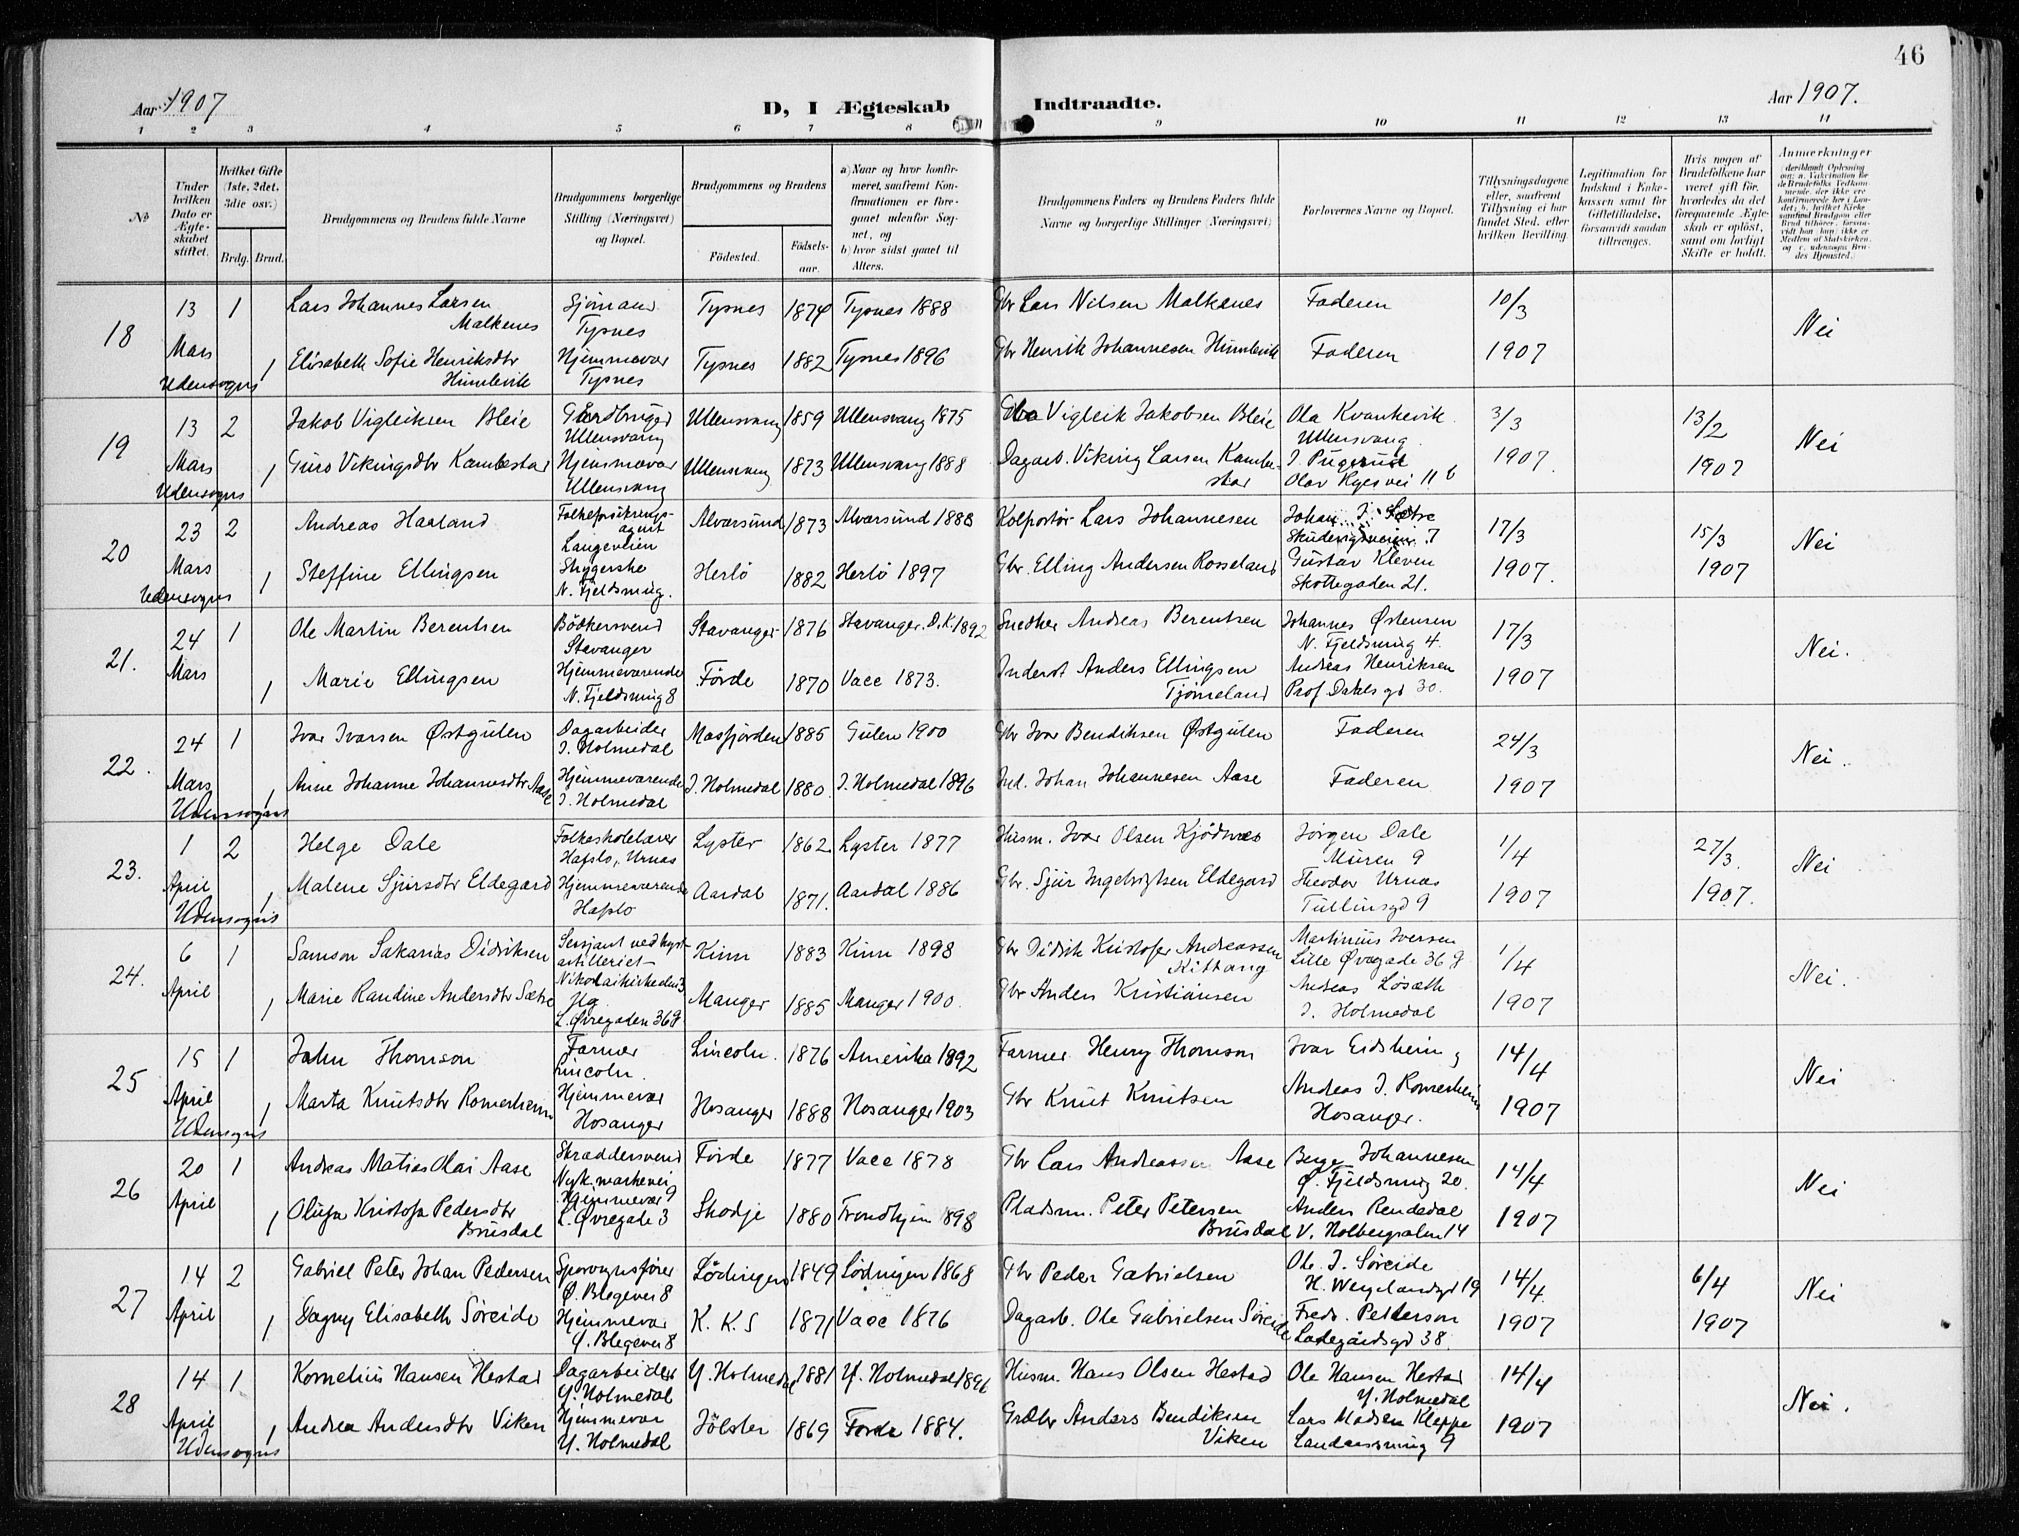 46
Aar 1907
D, I Ægteskab Indtraadte.
Aar 1907.
1 2 3 4 5 6 7 8 9 10 11 12 13 14
No
Under hvilken Dato er Ægteskabet stiftet.
Hvilket Gifte (1ste, 2det, 3die osv.)
Brdg. Brud.
Brudgommens og Brudens fulde Navne
Brudgommens borgerlige Stilling (Næringsvei) og Bopæl.
Brudgommens og Brudens
Födested. Födsels-aar.
a) Naar og hvor konfirmeret, saafremt Konfirmationen er foregaaet udenfor Sognet, og
b) hvor sidst gaaet til Alters.
Brudgommens Faders og Brudens Faders fulde Navne og borgerlige Stillinger (Næringsvei)
Forlovernes Navne og Bopæl.
Tillysningsdagene eller, saafremt Tillysning ei har fundet Sted, efter hvilken Bevilling
Legitimation for Indskud i Enkekassen samt for Giftetilladelse, forsaavidt saadan tiltrænges.
Hvis nogen af Brudefolkene har været gift før, hvorledes da det foregaaende Ægteskab er oplöst, samt om lovligt Skifte er holdt.
Anmærkninger
18 13 1 Lars Johannes Larsen Sjømand Tysnes 1874 Tysnes 1888 Gbr Lars Nilsen Malkenes Faderen 10/3 Nei
Malkenes Tysnes
Mars 1 Elisabeth Sofie Henriksdtr Hjemmevær Tysnes 1882 Tysnes 1896 Gbr Henrik Johannesen Humlevik Faderen 1907
Udensogns Humlevik Tysnes
19 13 2 Jakob Vigleiksen Bleie Gaardbruger Ullensvang 1859 Ullensvang 1875 Vigleik Jakobsen Bleie Ola Kvankevik 3/3 13/2 Nei
Ullensvang Ullensvang
Mars 1 Guro Vikingsdtr Kambestad Hjemmevær Ullensvang 1873 Ullensvang 1888 Dagarb. Viking Larsen Kambe- 1907. 1907
Udensogns Ullensvang stad Olav Kyrresvei 11 b
20 23 2 Andreas Haaland Folkeforsikrings- Alversund 1873 Alversund 1888 Kolportør Lars Johannesen Johan J. Sætre 17/3 15/3 Nei
agent
Langeveien Skuteviksveien 7
Mars 1 Steffine Ellingsen Herlö 1882 Herlö 1897 Gbr. Elling Andersen Rosseland Gustav Kleven 1907. 1907
Udensogns N. Fjeldsmug. Skottegaden 21.
21. 24 1 Ole Martin Berentsen Bödkersvend Stavanger 1876 Stavanger D.K. 1892 Snedker Andreas Berentsen Johannes Østensen 17/3 Nei.
Stavanger N. Fjeldsmug 4
Mars 1 Marie Ellingsen Hjemmeværende Förde 1870 Vacc 1873. Inderst Anders Ellingsen Andreas Henriksen 1907
N. Fjeldsmug 8 Tjömeland Prof. Dahls gd 30.
22. 24 1 Ivar Ivarsen Østgulen Dagarbeider Masfjorden 1885 Gulen 1900 Gbr Ivar Bendiksen Østgulen Faderen 24/3 Nei.
I. Holmedal
Mars 1 Anne Johanne Johannesdtr Aase Hjemmeværende I. Holmedal 1880. I. Holmedal 1896 Ind. Johan Johannesen Aase Faderen 1907
Udensogns I. Holmedal
23. 1 2 Helge Dale Folkeskolelærer Lyster 1862. Lyster 1877 Husm. Ivar Olsen Kjödnæs Jörgen Dale 1/4 27/3. Nei
Hafslo, Urnæs Muren 9
April 1 Malene Sjursdtr Eldegard Hjemmeværende Aardal 1871. Aardal 1886 Gbr. Sjur Ingebrigtsen Eldegard Theodor Urnæs 1907 1907.
Udensogns Hafslo Tullinsgd 9
24. 6 1 Samson Sakarias Didriksen Sersjant ved kyst- Kinn 1883 Kinn 1898 Gbr Didrik Kristofer Andreassen Martinius Iversen 1/4 Nei.
artilleriet Kittang Lille Øvregade 36 g
Nikolaikirkealm 3
April 1 Marie Randine Andersdtr Sætre Manger 1885 Manger 1900. Gbr Anders Kristiansen Andreas Løsæth 1907
L. Øvregaden 36 g I. Holmedal
25 15 1 John Thomson Farmer Lincoln. 1876 Amerika 1892 Farmer Henry Thomson Ivar Eidsheim 14/4 Nei
Lincoln.
April 1 Marta Knutsdtr Romerheim Hjemmevær Hosanger 1888 Hosanger 1903 Gbr Knut Knutsen Andreas I. Romerheim 1907
Udensogns Hosanger Hosanger.
26 20 1 Andreas Matias Olai Aase Skræddersvend Förde 1877 Vacc 1878 Gbr Lars Andreassen Aase Berge Johannesen 14/4 Nei
Nyk markevei Ø. Fjeldsmug 20.
April 1 Olufa Kristofa Pedersdtr Hjemmevær Skodje 1880 Trondhjem 1898 Pladsm. Peter Petersen Anders Rendedal 1907
Brusdal L. Øvregade 3 Brusdal V. Holbergsalm 14
27 14 2 Gabriel Peter Johan Pedersen Sporvognsfører Lödingen 1849 Lödingen 1868 Gbr Peder Gabrielsen Ole J. Söreide 14/4 6/4 Nei
Ø. Blegevei 8 H. Wergelandsgd 19
April 1 Dagny Elisabeth Söreide Hjemmevær K.K.S 1871 Vacc 1876 Dagarb. Ole Gabrielsen Söreide Fredr. Pettersen 1907 1907
Ø. Blegevei 8 Ladegårdsgd 38.
28 14 1 Kornelius Hansen Hestad Dagarbeider Y. Holmedal 1881 Y. Holmedal 1896 Husm. Hans Olsen Hestad Ole Hansen Hestad 14/4 Nei.
Y. Holmedal Y. Holmedal
April 1 Andrea Andersdtr Viken Hjemmevær Jölster 1869 Förde 1884. Gbr Anders Bendiksen Lars Madsen Kleppe 1907
Udensogns Y. Holmedal Viken 9